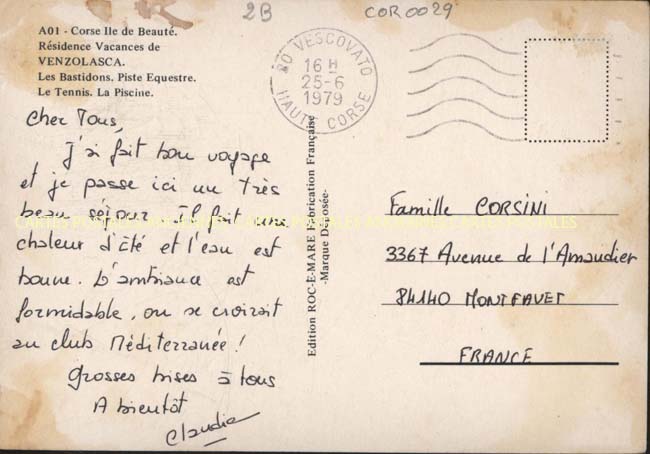 2B
COR0029
A01 - Corse Ile de Beauté.
Résidence Vacances de
VENZOLASCA.
Les Bastidons. Piste Equestre.
Le Tennis. La Piscine.
20 VESCOVATO
16 H
25-6
1979
HAUTE CORSE
Cher Tous,
J'ai fait bon voyage
et je passe ici un très
beau séjour. Il fait une
chaleur d'Eté et l'eau est
bonne. L'ambiance est
formidable, on se croirait
au club Méditerranée !
Grosses bises à tous
A bientôt
Claudie
Edition ROC-E-MARE Fabrication Française
-Marque Déposée-
Famille CORSINI
3367 Avenue de l'Amandier
84140 MONTFAVET
FRANCE